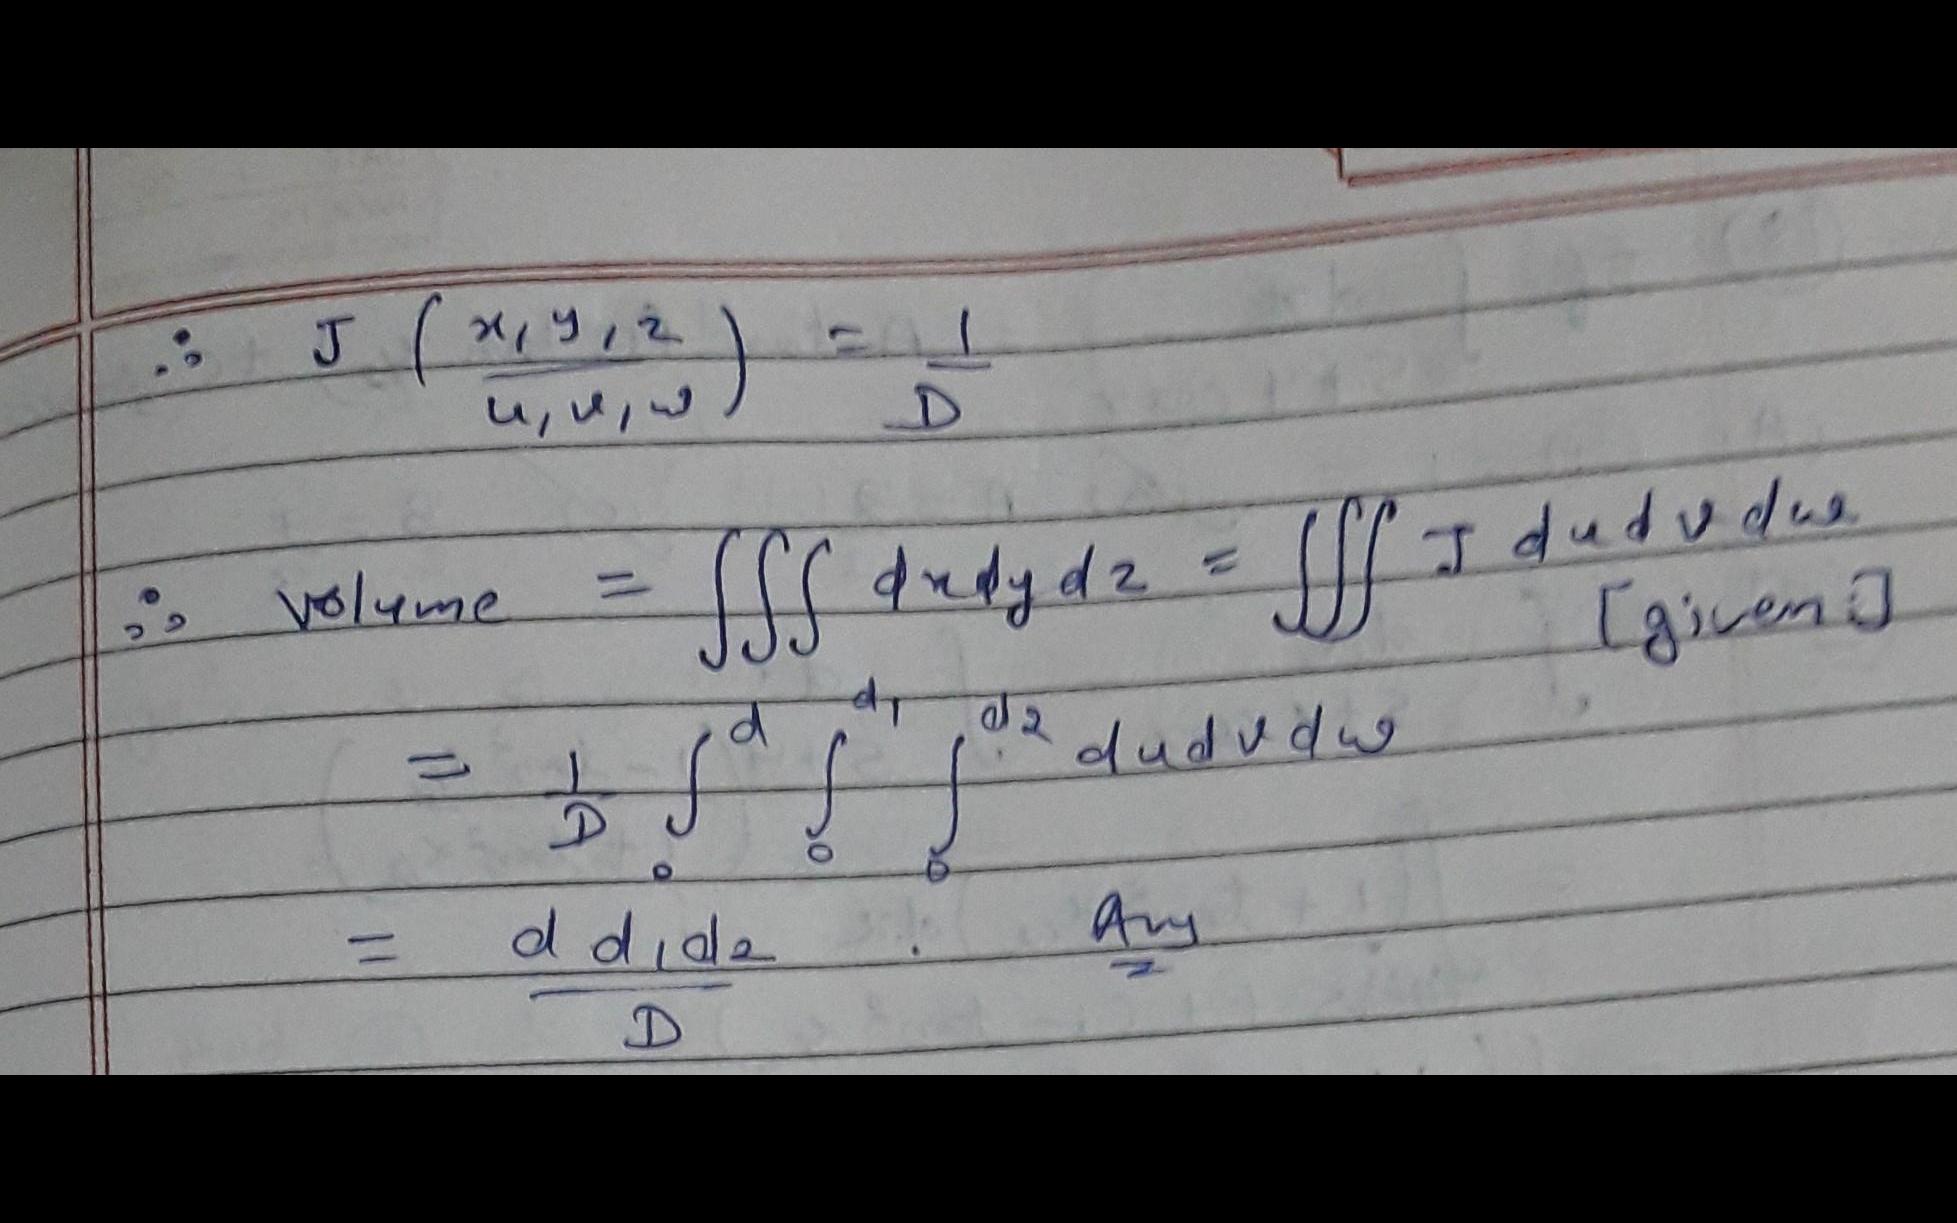 ∴ J (x, y, z / u, v, w) = 1/D
∴ volume = ∭ dxdydz = ∭ J dudvdw
[given]
= 1/D ∫₀^d ∫₀^d₁ ∫₀^d₂ dudvdw
= d d₁d₂ / D . Ans